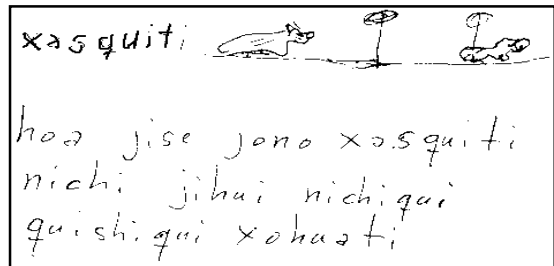 xasquiti
hoa jise jono xasquiti
nichi jihui nichiqui
quishiqui xohuati